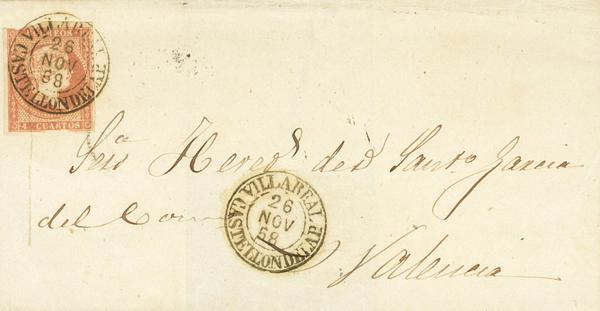 VILLAREAL
26
NOV
58
CASTELLON DE LA P.
4 CUARTOS
Hered.s de D. Santo Garcia
del
VILLAREAL
26
NOV
58
CASTELLON DE LA P.
Valencia